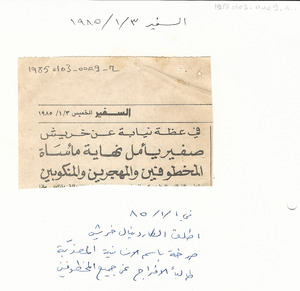 السفير ١٩٨٥/١/٣
1985 d03_00a9_r
السفير الخميس ١٩٨٥/١/٣
في عظة نيابة عن خريش
صفير يأمل نهاية مأساة
المخطوفين والمهجرين والمنكوبين
في ٨٥/١/١
اطلق الكاردينال خريش
صرخة باسم الانسانية المعذبة
طالباً الافراج عن جميع المخطوفين